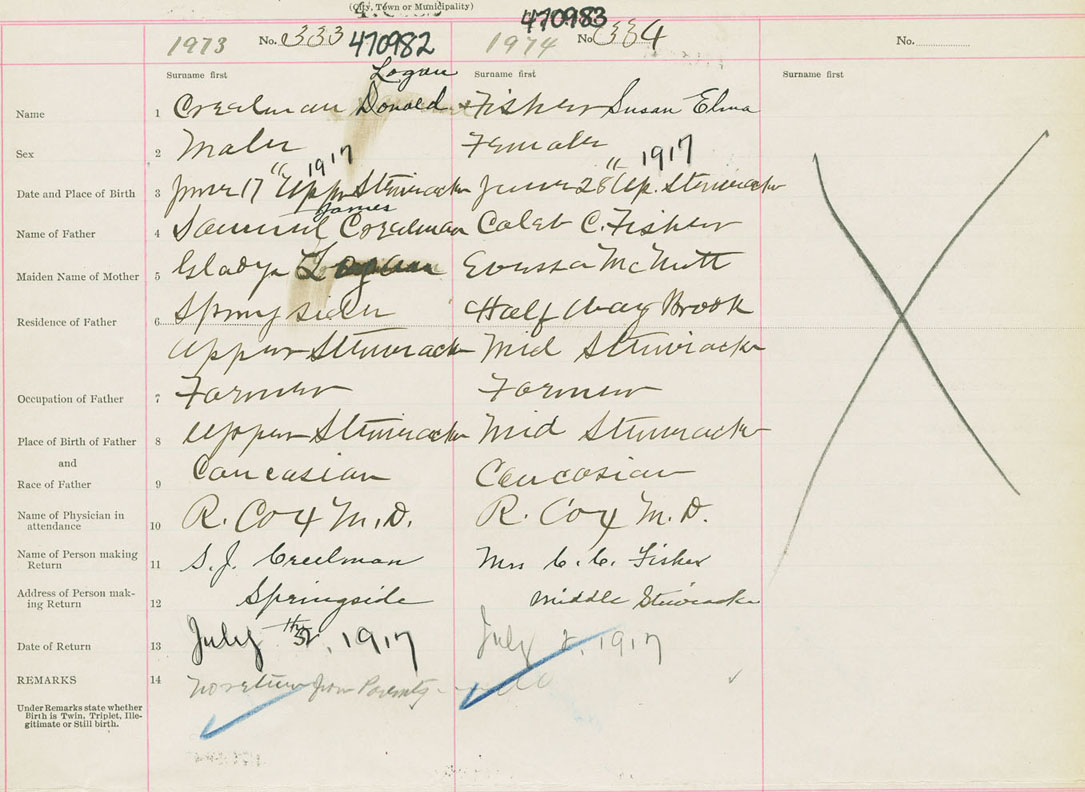 (City, Town or Municipality)
1973 No. 333 470982 1974 No. 334 470983 No.
Surname first Surname first Surname first
Logan
Name 1 Creelman Donald Fisher Susan Elma
Sex 2 Male Female
1917 1917
Date and Place of Birth 3 June 17" Upper Stewiacke June 28" Up. Stewiacke
James
Name of Father 4 Samuel Creelman Caleb C. Fisher
Maiden Name of Mother 5 Gladys Logan McNutt
Residence of Father 6 Springside Half Way Brook
Upper Stewiacke Mid Stewiacke
Occupation of Father 7 Farmer Farmer
Place of Birth of Father 8 Upper Stewiacke Mid Stewiacke
and
Race of Father 9 Caucasian Caucasian
Name of Physician in attendance 10 R. Cox M.D. R. Cox M.D.
Name of Person making Return 11 S. J. Creelman Mrs C. C. Fisher
Address of Person mak-ing Return 12 Springside Middle Stewiacke
Date of Return 13 July 1917 July 2, 1917
REMARKS 14 No return from Parents do
Under Remarks state whether
Birth is Twin, Triplet, Ille-
gitimate or Still birth.